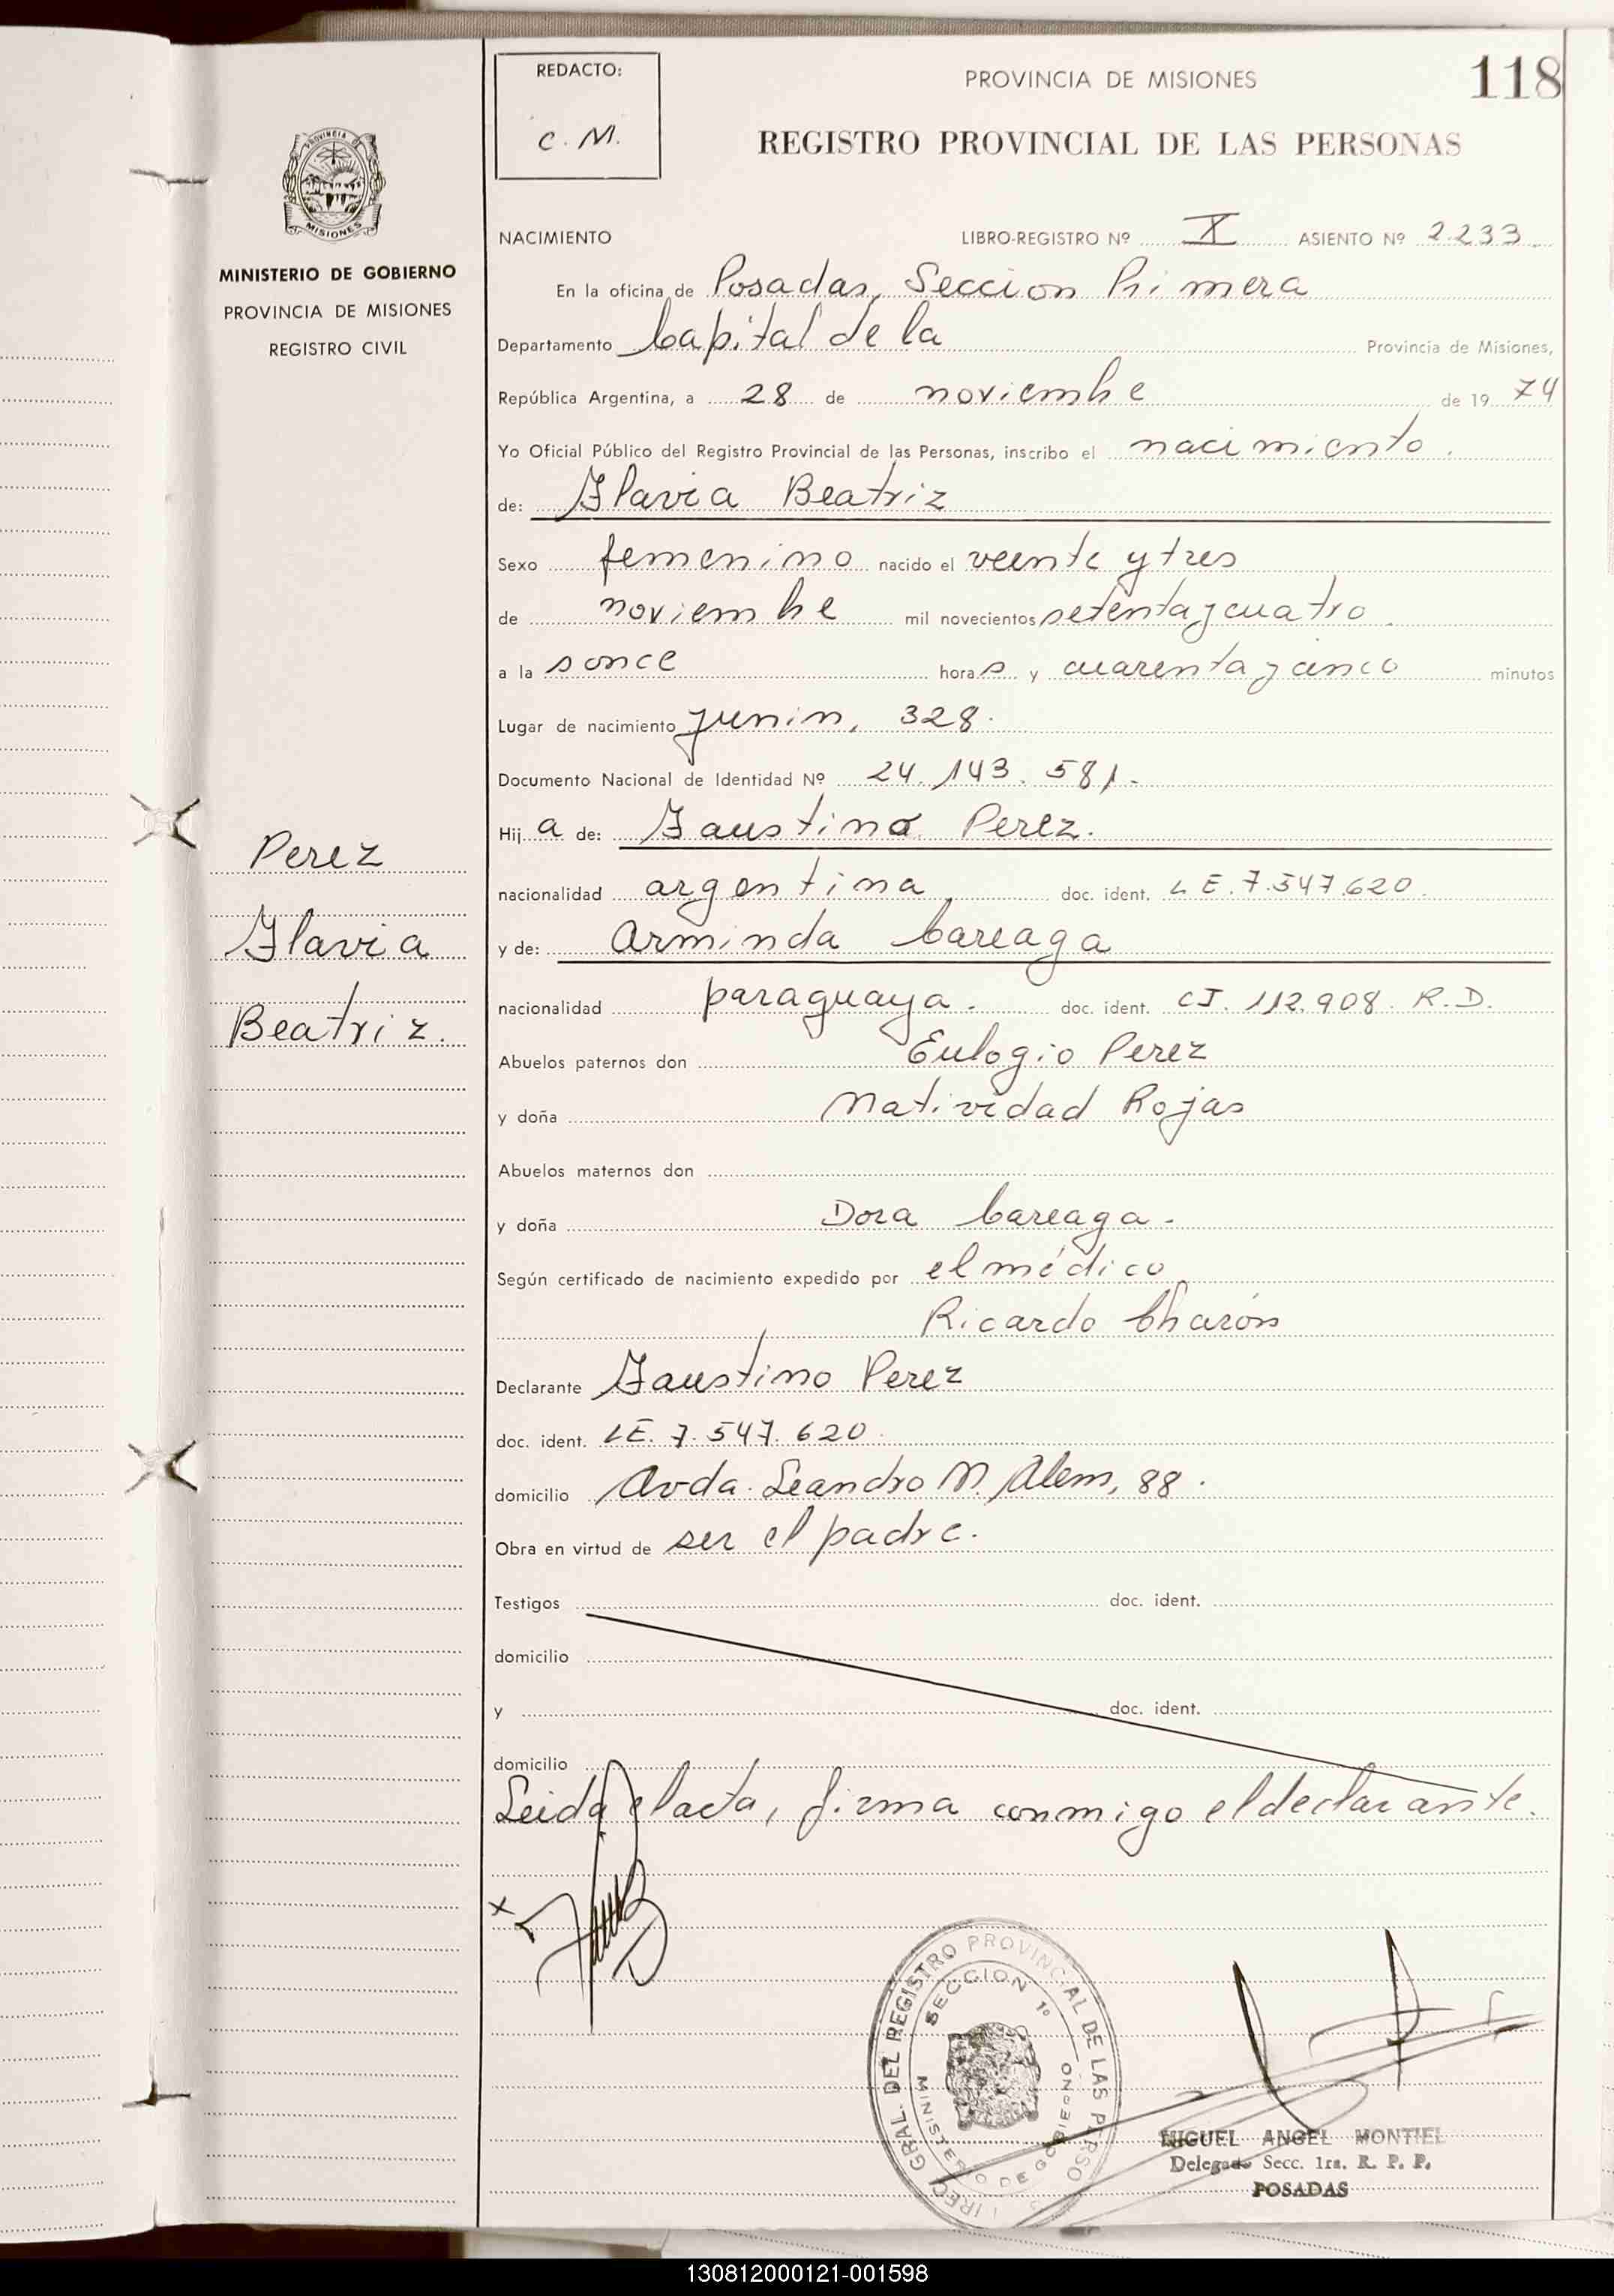 REDACTO:
C. M.
PROVINCIA DE MISIONES
118
REGISTRO PROVINCIAL DE LAS PERSONAS
PROVINCIA DE
MISIONES
MINISTERIO DE GOBIERNO
PROVINCIA DE MISIONES
REGISTRO CIVIL
NACIMIENTO LIBRO-REGISTRO Nº X ASIENTO Nº 2.233
En la oficina de Posadas, Seccion Primera
Departamento Capital de la Provincia de Misiones,
República Argentina, a 28 de noviembre de 19 74
Yo Oficial Público del Registro Provincial de las Personas, inscribo el nacimiento.
de: Flavia Beatriz
Sexo femenino nacido el veinte y tres
de noviembre mil novecientos setenta y cuatro
a la s once hora s y cuarenta y cinco minutos
Lugar de nacimiento Junin, 328.
Documento Nacional de Identidad Nº 24.143.581.
Hij a de: Faustino Perez.
nacionalidad argentina doc. ident. LE.7.547.620.
y de: Arminda Careaga
nacionalidad paraguaya. doc. ident. CI. 112.908. R.D.
Abuelos paternos don Eulogio Perez
y doña Natividad Rojas
Abuelos maternos don
y doña Dora Careaga.
Según certificado de nacimiento expedido por el médico
Ricardo Charón
Declarante Faustino Perez
doc. ident. LE. 7.547.620.
domicilio Avda. Leandro N. Alem, 88.
Obra en virtud de ser el padre.
Testigos doc. ident.
domicilio
y doc. ident.
domicilio
Leida el acta, firma conmigo el declarante.
Perez
Flavia
Beatriz.
x
GRAL. DEL REGISTRO PROVINCIAL DE LAS PERSO
SECCION 1º
MINISTERIO DE GOBIERNO
MIGUEL ANGEL MONTIEL
Delegado Secc. 1ra. R. P. P.
POSADAS
130812000121-001598